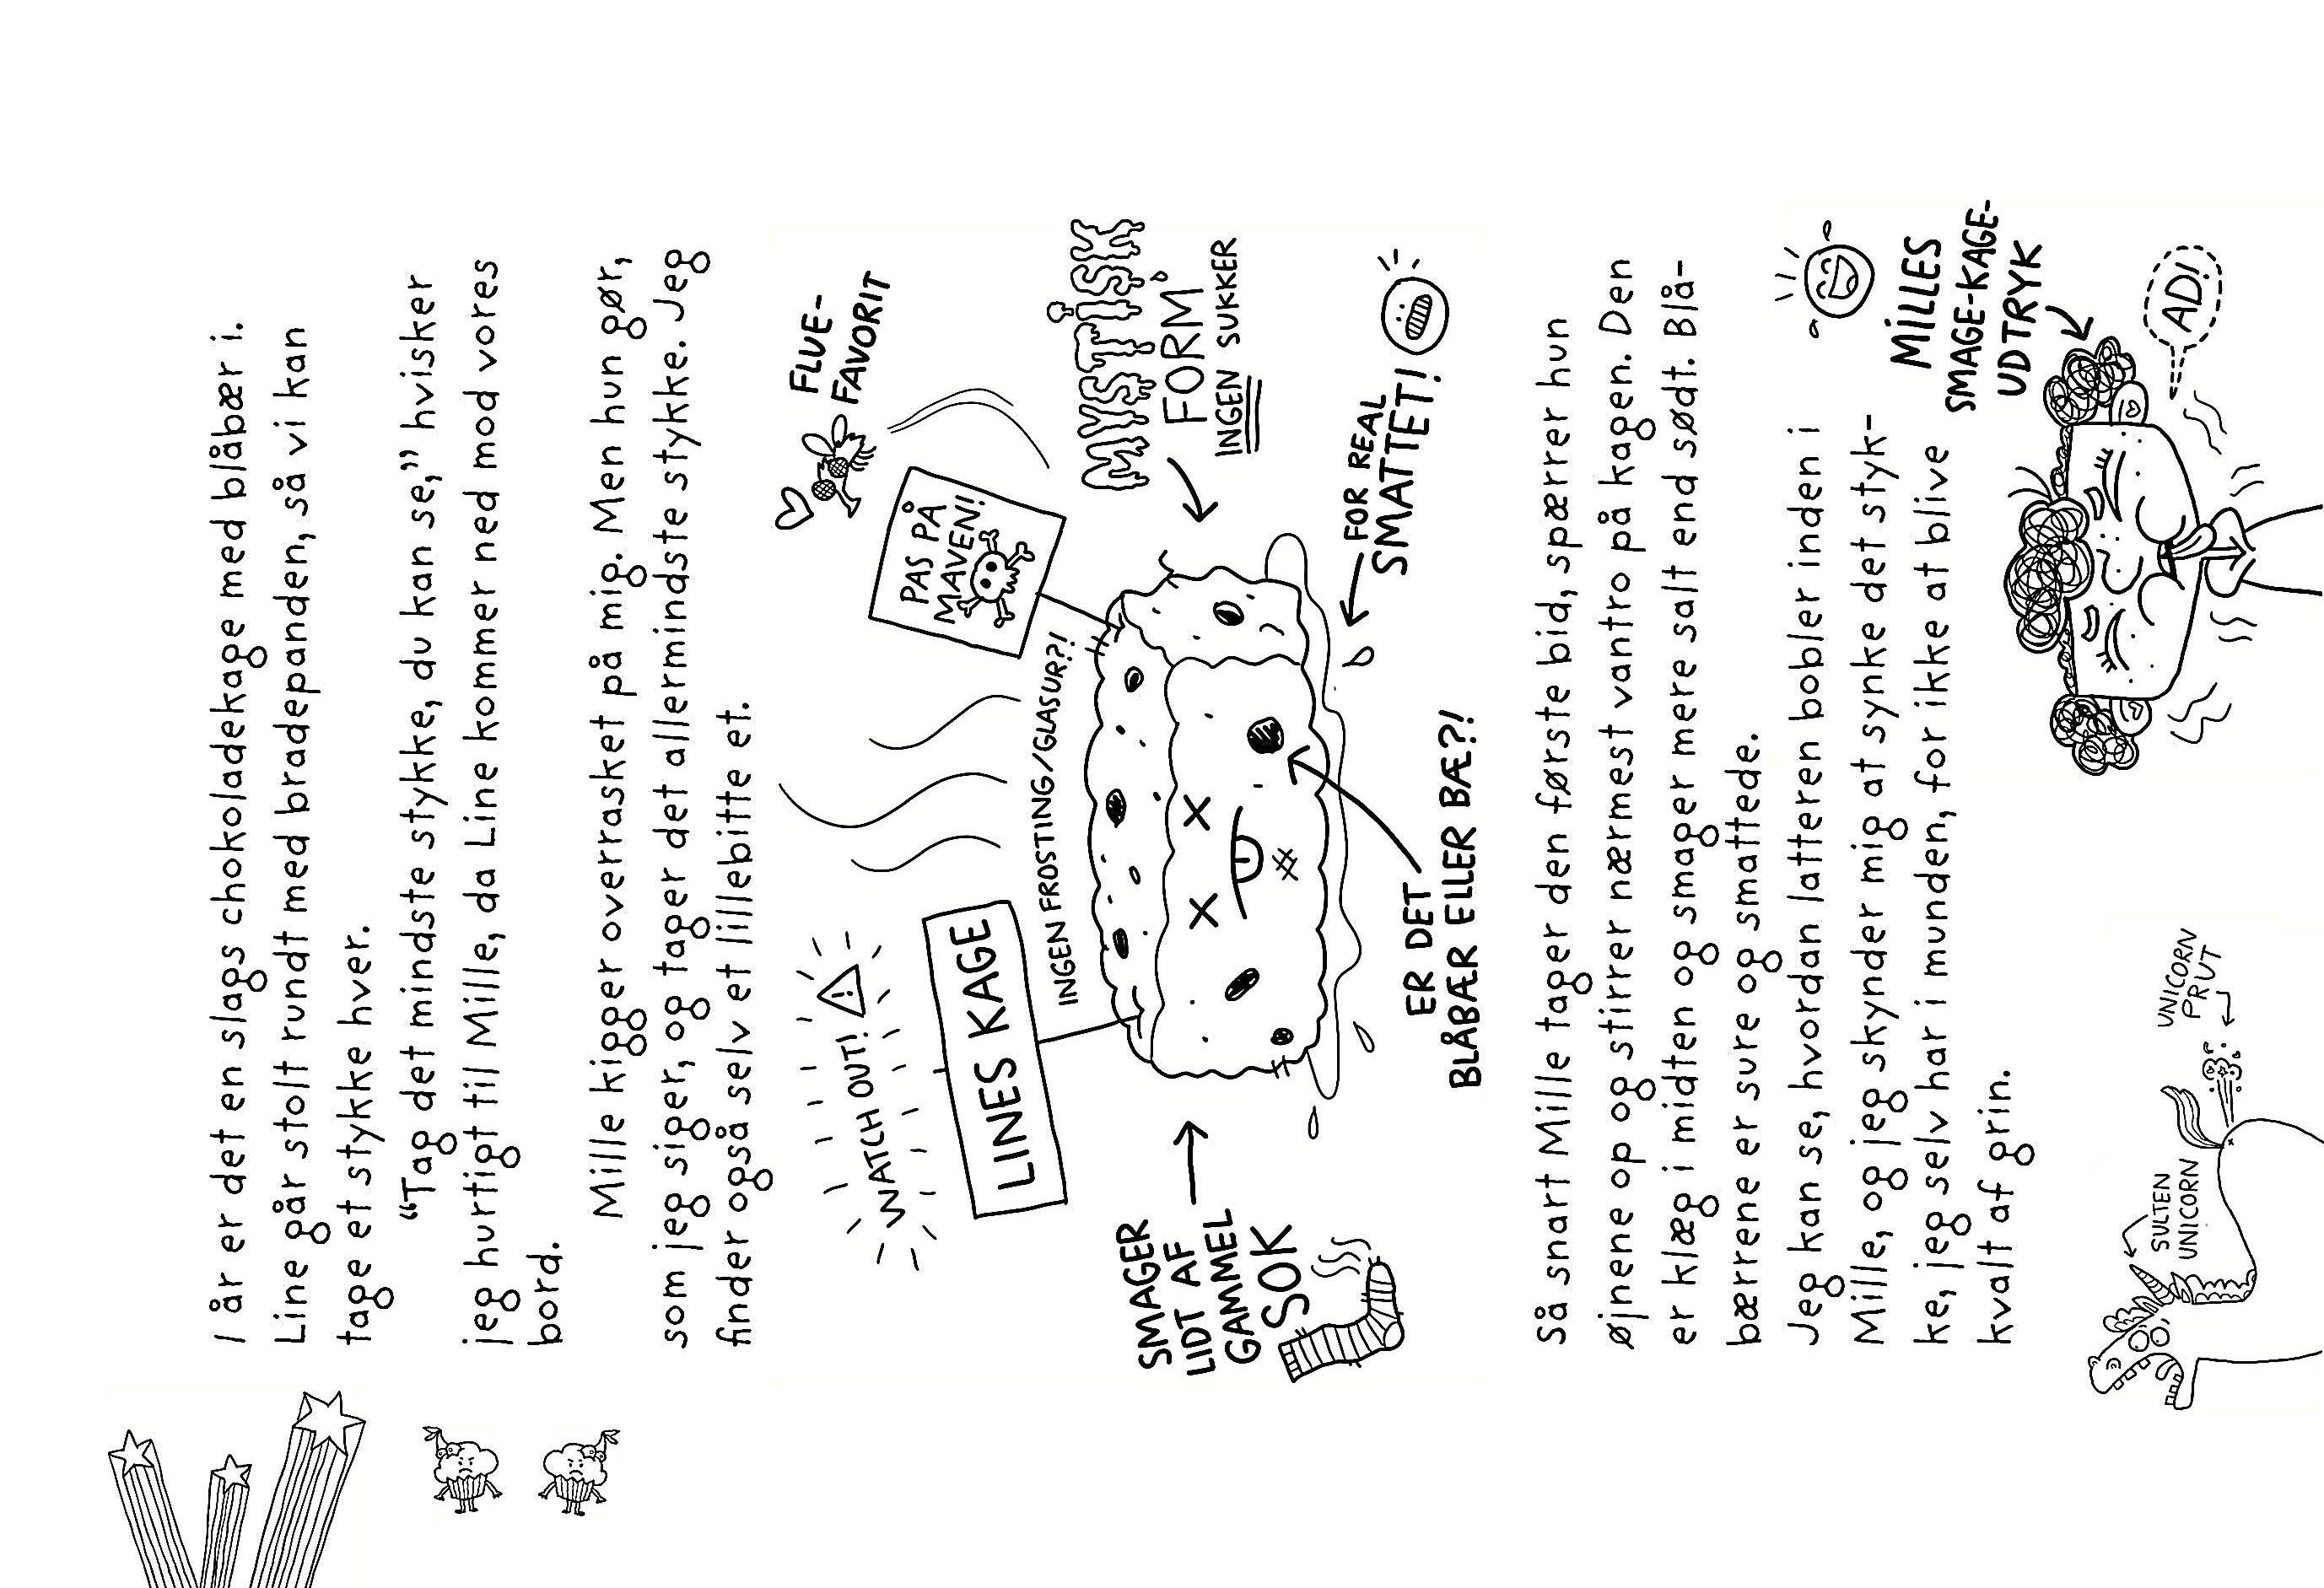 I år er det en slags chokoladekage med blåbær i.
Line går stolt rundt med bradepanden, så vi kan
tage et stykke hver.
“Tag det mindste stykke, du kan se,” hvisker
jeg hurtigt til Mille, da Line kommer ned mod vores
bord.
Mille kigger overrasket på mig. Men hun gør,
som jeg siger, og tager det allermindste stykke. Jeg
finder også selv et lillebitte et.
WATCH OUT!
FLUE-
FAVORIT
LINES KAGE
PAS PÅ
MAVEN!
INGEN FROSTING/GLASUR?!
MYSTISK
FORM
INGEN SUKKER
SMAGER
LIDT AF
GAMMEL
SOK
FOR REAL
SMATTET!
ER DET
BLÅBÆR ELLER BÆ?!
Så snart Mille tager den første bid, spærrer hun
øjnene op og stirrer nærmest vantro på kagen. Den
er klæg i midten og smager mere salt end sødt. Blå-
bærrene er sure og smattede.
Jeg kan se, hvordan latteren bobler inden i
Mille, og jeg skynder mig at synke det styk-
ke, jeg selv har i munden, for ikke at blive
kvalt af grin.
MILLES
SMAGE-KAGE-
UDTRYK
AD!
SULTEN
UNICORN
UNICORN
PRUT